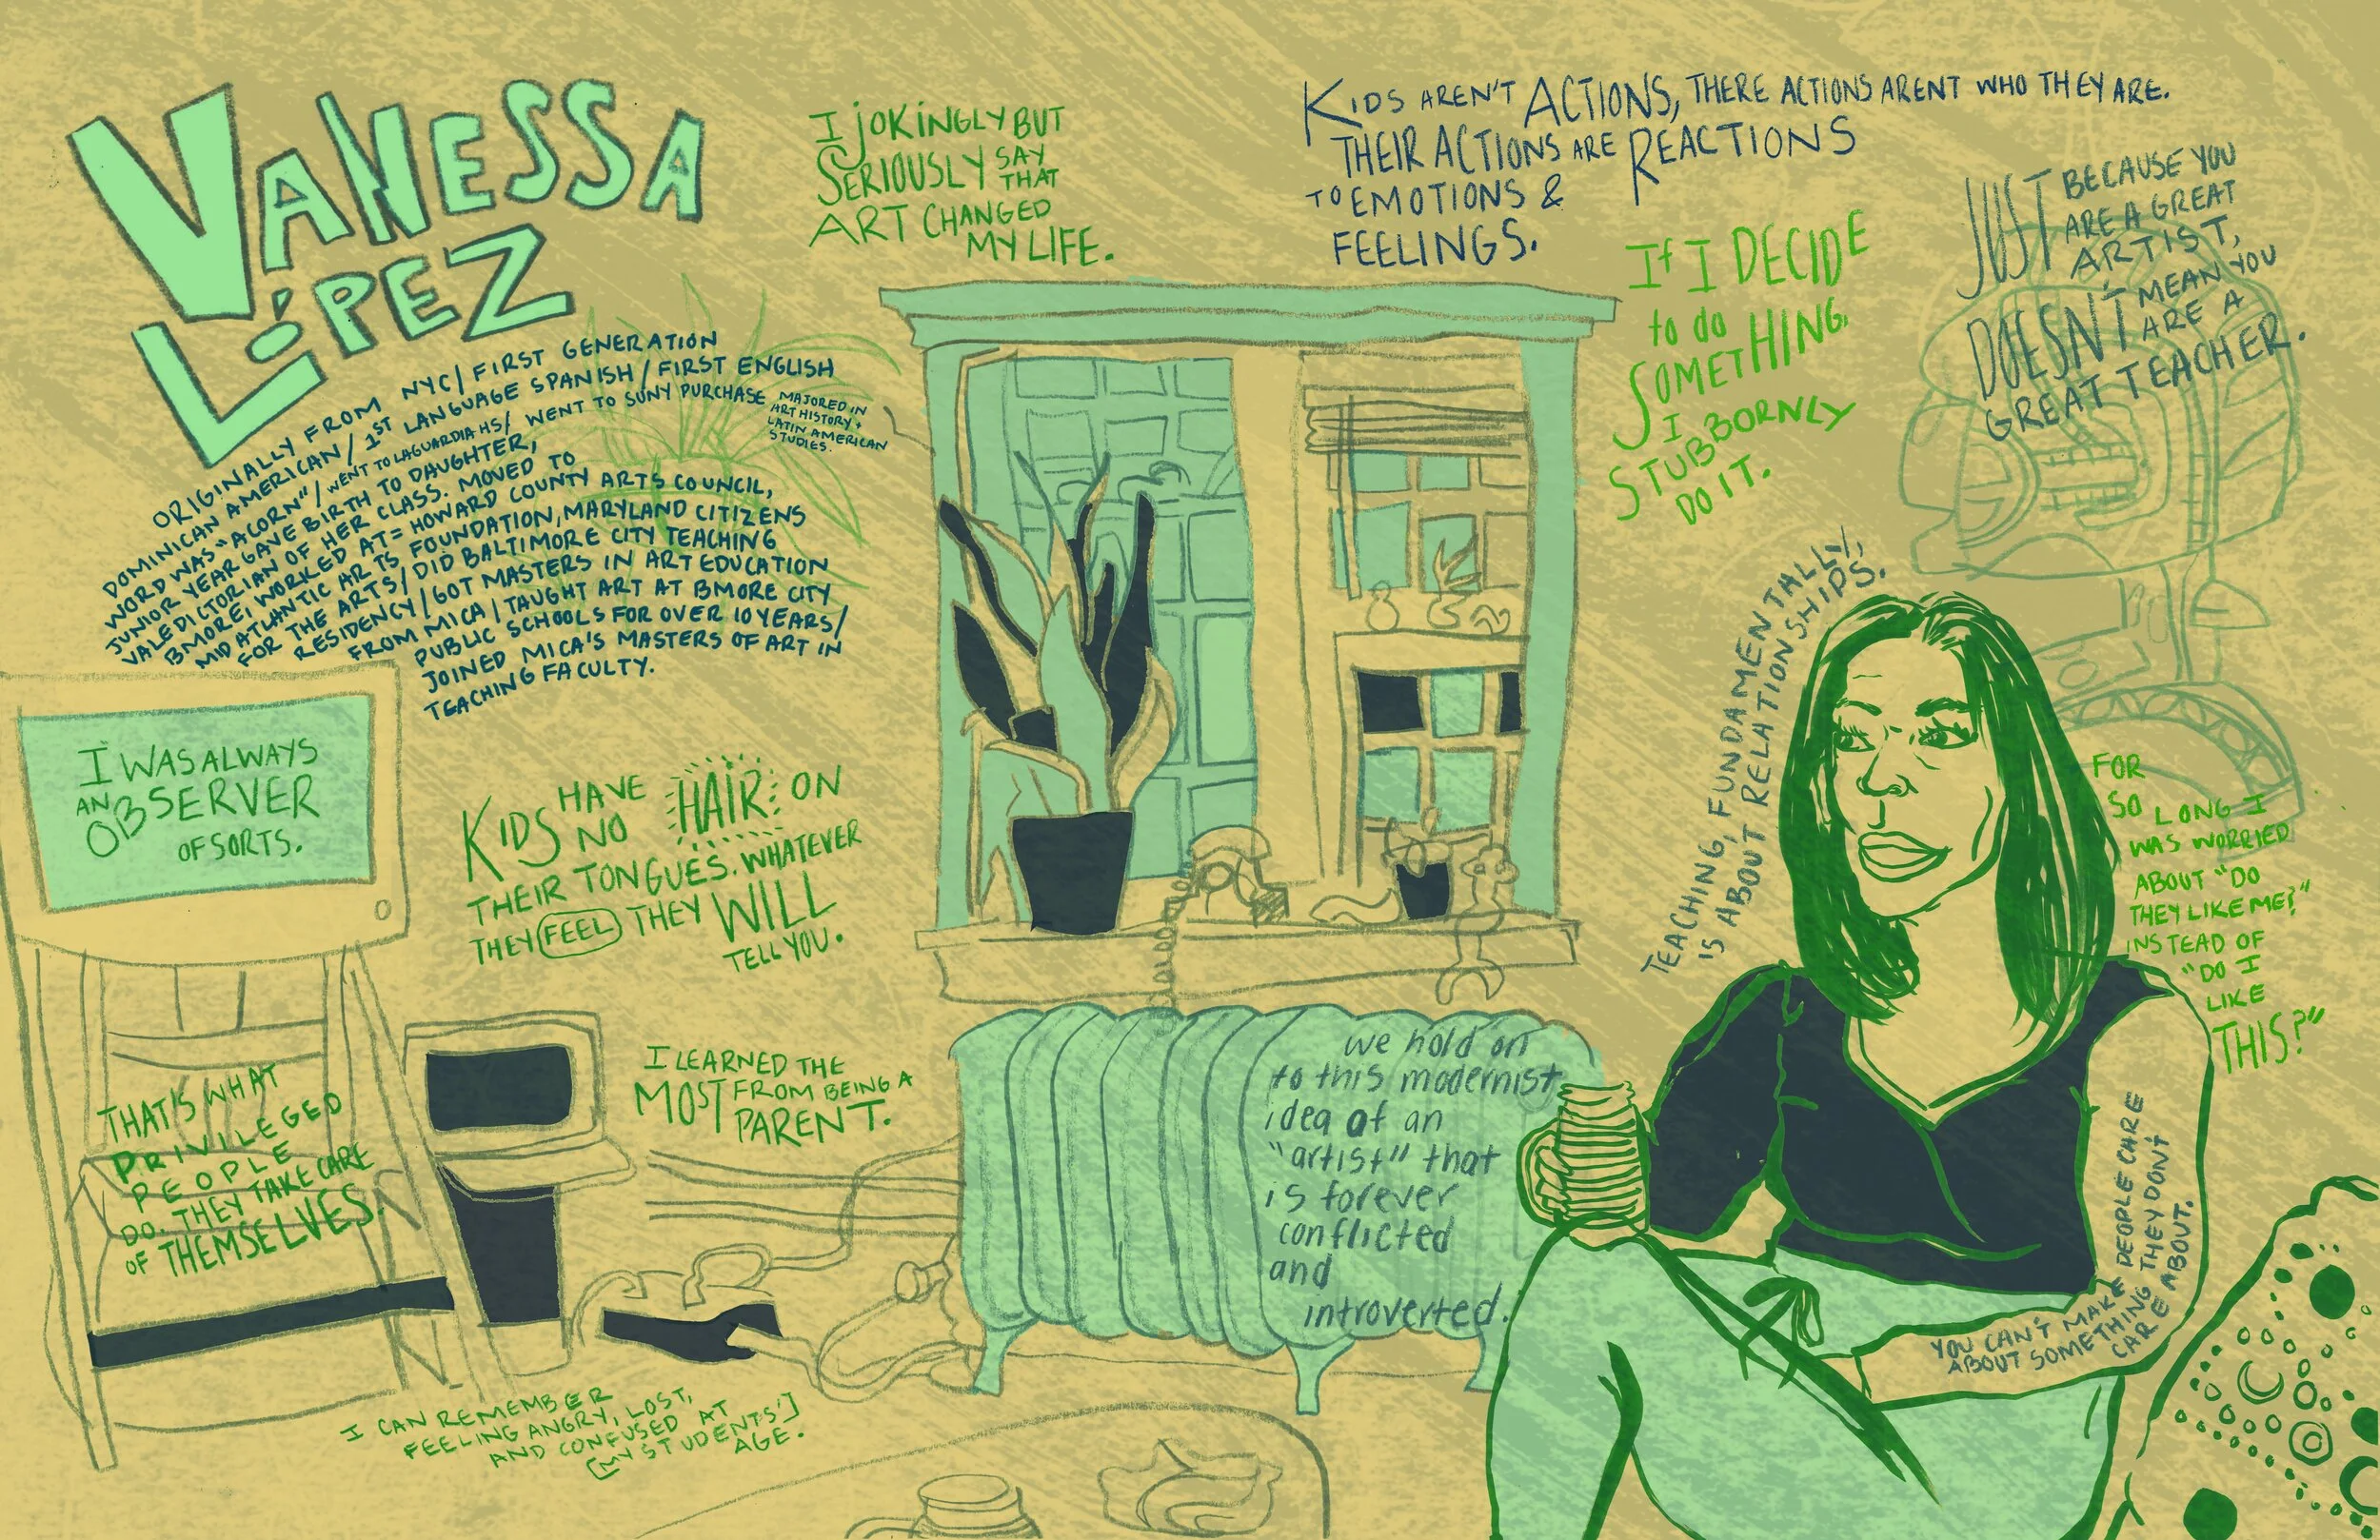 VANESSA
LÓPEZ
ORIGINALLY FROM NYC/FIRST GENERATION
DOMINICAN AMERICAN/1ST LANGUAGE SPANISH/FIRST ENGLISH
WORD WAS "ACORN"/WENT TO LAGUARDIA HS/WENT TO SUNY PURCHASE
MAJORED IN
ART HISTORY +
LATIN AMERICAN
STUDIES.
JUNIOR YEAR GAVE BIRTH TO DAUGHTER,
VALEDICTORIAN OF HER CLASS. MOVED TO
BMORE, WORKED AT= HOWARD COUNTY ARTS COUNCIL,
MID ATLANTIC ARTS FOUNDATION, MARYLAND CITIZENS
FOR THE ARTS/DID BALTIMORE CITY TEACHING
RESIDENCY/GOT MASTERS IN ART EDUCATION
FROM MICA/TAUGHT ART AT BMORE CITY
PUBLIC SCHOOLS FOR OVER 10 YEARS/
JOINED MICA'S MASTERS OF ART IN
TEACHING FACULTY.
I JOKINGLY BUT
SERIOUSLY SAY
THAT
ART CHANGED
MY LIFE.
KIDS AREN'T ACTIONS, THERE ACTIONS ARENT WHO THEY ARE.
THEIR ACTIONS ARE REACTIONS
TO EMOTIONS &
FEELINGS.
If I DECIDE
to do
SOMETHING,
I
STUBBORNLY
DO IT.
JUST BECAUSE YOU
ARE A GREAT
ARTIST,
DOESN'T MEAN YOU
ARE A
GREAT TEACHER.
I WAS ALWAYS
AN OBSERVER
OF SORTS.
KIDS HAVE NO HAIR ON
THEIR TONGUES. WHATEVER
THEY FEEL THEY WILL
TELL YOU.
TEACHING, FUNDAMENTALLY,
IS ABOUT RELATIONSHIPS.
FOR
SO LONG I
WAS WORRIED
ABOUT "DO
THEY LIKE ME?"
INSTEAD OF
"DO I
LIKE
THIS?"
THAT'S WHAT
PRIVILEGED
PEOPLE
DO. THEY TAKE CARE
OF THEMSELVES.
I LEARNED THE
MOST FROM BEING A
PARENT.
we hold on
to this modernist
idea of an
"artist" that
is forever
conflicted
and
introverted.
YOU CAN'T MAKE PEOPLE CARE
ABOUT SOMETHING THEY DON'T
CARE ABOUT.
I CAN REMEMBER
FEELING ANGRY, LOST,
AND CONFUSED AT
[MY STUDENTS']
AGE.